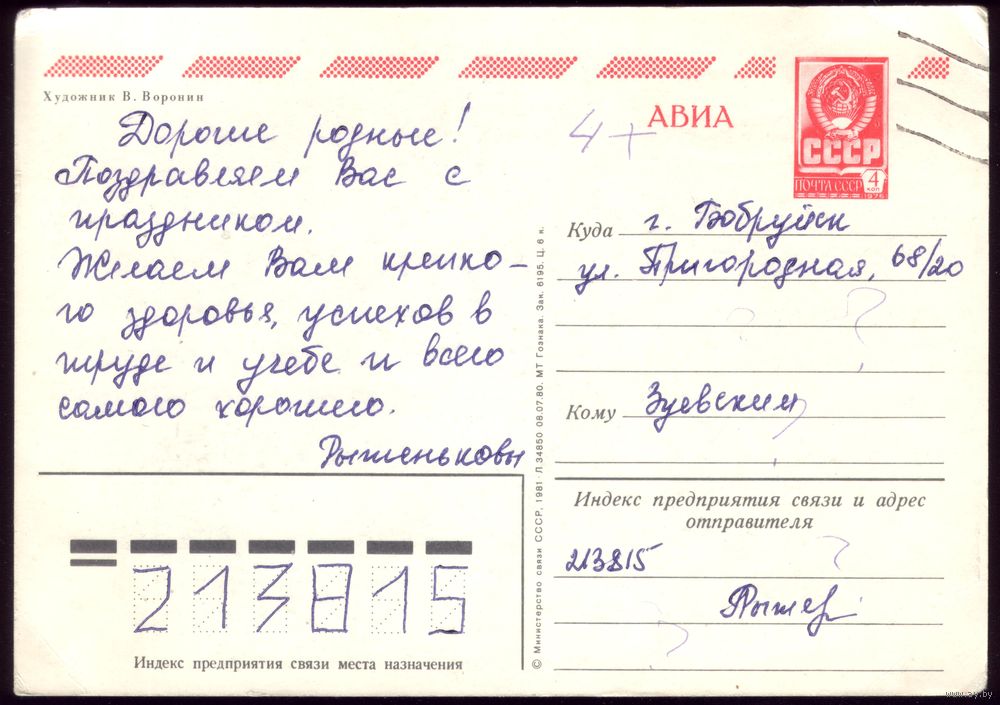 Художник В. Воронин
Дорогие родные!
Поздравляем Вас с
праздником.
Желаем Вам крепко-
го здоровья, успехов в
труде и учебе и всего
самого хорошего.
Рыженьковы
213815
Индекс предприятия связи места назначения
© Министерство связи СССР, 1981 Л 34850 08.07.80. МТ Гознака. Зак. 6195. Ц. 6 к.
4+
АВИА
СССР
ПОЧТА СССР
4 КОП
1976
Куда г. Бобруйск
ул. Пригородная, 68/20
Кому Зуевским
Индекс предприятия связи и адрес
отправителя
213815
www.ay.by